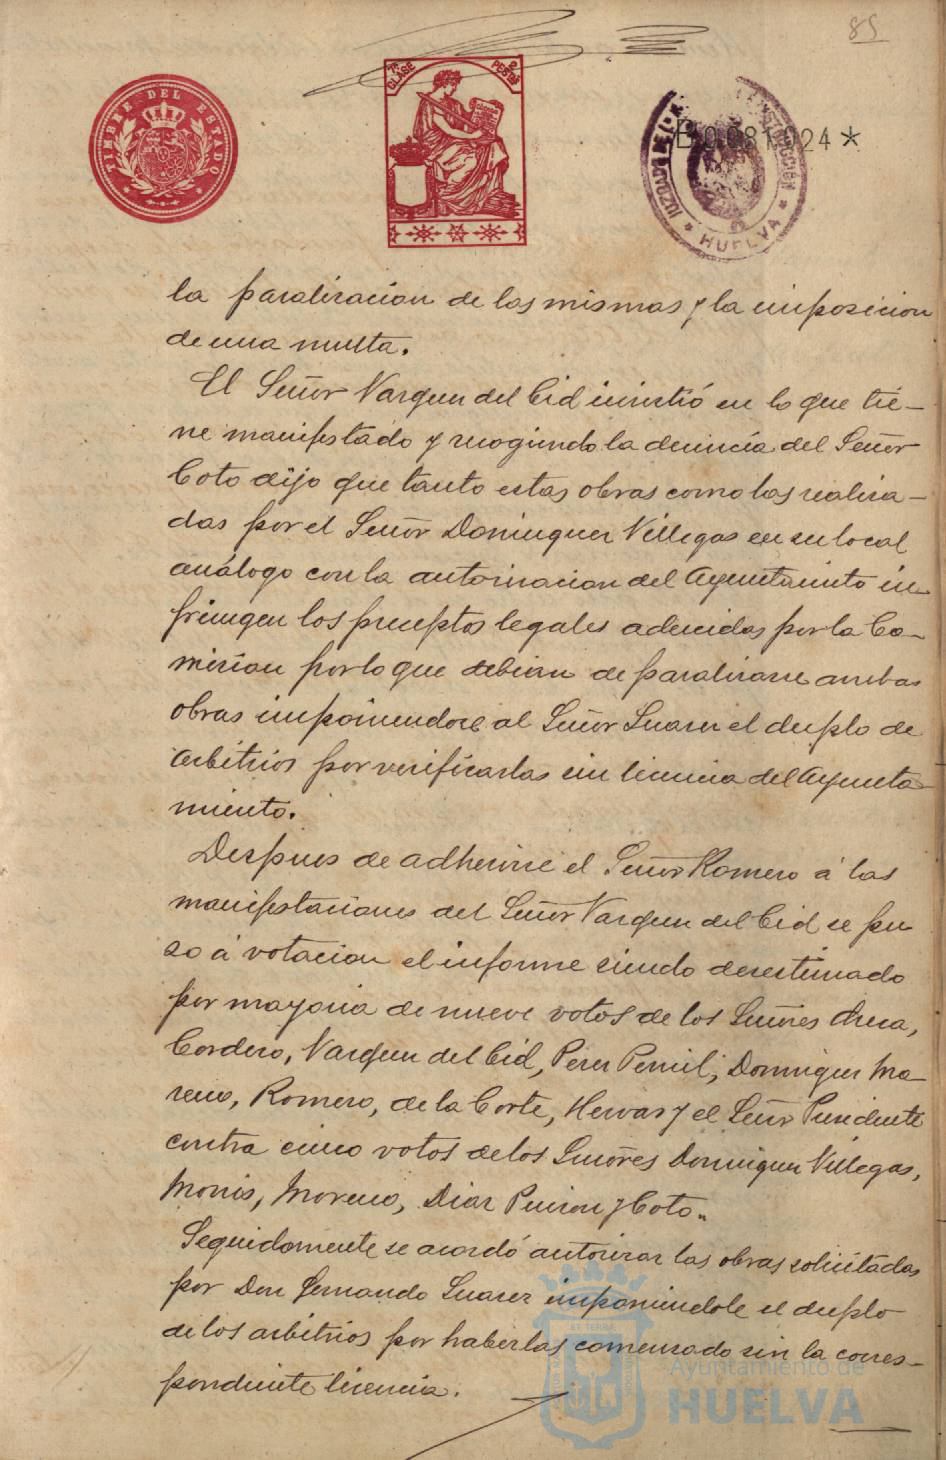 85
TIMBRE DEL ESTADO
7ª CLASE
2 PESTAS
B.0.081.924*
JUZGADO DE INSTRUCCIÓN * HUELVA *
la paralizacion de las mismas y la imposicion
de una multa.
El Señor Vazquez del Cid insistió en lo que tie-
ne manifestado y recogiendo la denuncia del Señor
Coto dijo que tanto estas obras como las realiza-
das por el Señor Dominguez Villegas en su local
análogo con la autorizacion del Ayuntamiento in-
fringen los preceptos legales aducidos por la Co-
mision por lo que debian de paralizarse ambas
obras imponiendose al Señor Suarez el duplo de
arbitrios por verificarlas sin licencia del Ayunta-
miento.
Despues de adherirse el Señor Romero á las
manifestaciones del Señor Vazquez del Cid se pu
so á votacion el informe siendo desestimado
por mayoria de nueve votos de los Señores
Cordero, Vazquez del Cid, Perez Penil, Dominguez Mo-
reno, Romero, de la Corte, Hervas y el Señor Presidente
contra cinco votos de los Señores Dominguez Villegas,
Monis, Moreno, Diaz Pinzon y Coto.
Seguidamente se acordó autorizar las obras solicitadas
por Don Fernando Suarez imponiendole el duplo
de los arbitrios por haberlas comenzado sin la corres-
pondiente licencia.
Ayuntamiento de
HUELVA